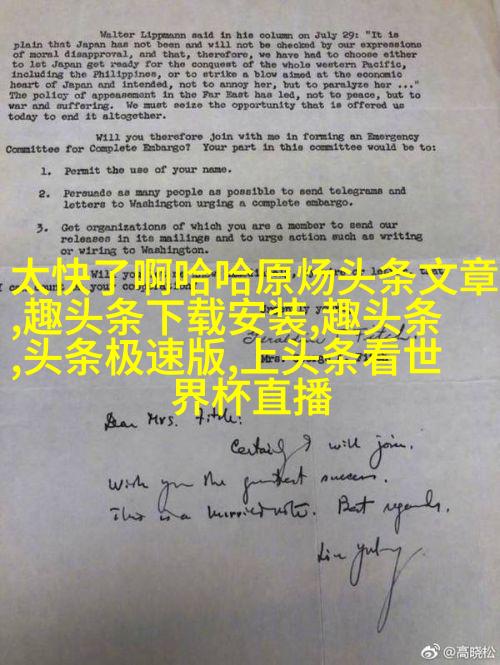 Walter Lippmann said in his column on July 29: "It is
plain that Japan has not been and will not be checked by our expressions
of moral disapproval, and that, therefore, we have had to choose either
to let Japan get ready for the conquest of the whole western Pacific,
including the Philippines, or to strike a blow aimed at the economic
heart of Japan and intended, not to annoy her, but to paralyze her ..."
The policy of appeasement in the Far East has led, not to peace, but to
war and suffering. We must seize the opportunity that is offered us
today to end it altogether.
Will you therefore join with me in forming an Emergency
Committee for Complete Embargo? Your part in this committee would be to:
1. Permit the use of your name.
2. Persuade as many people as possible to send telegrams and
letters to Washington urging a complete embargo.
3. Get organizations of which you are a member to send our
releases in its mailings and to urge action such as writing
or wiring to Washington.
太快了啊哈哈原炀头条文章
Will you
,趣头条下载安装,趣头条
,头条极速版,上头条看世
Mrs.
界杯直播
Dear Mrs. Fitch:
Certainly I will join.
Wish you the greatest success.
This is a hurried note. Best regards.
Lin Yutang
@高晓松